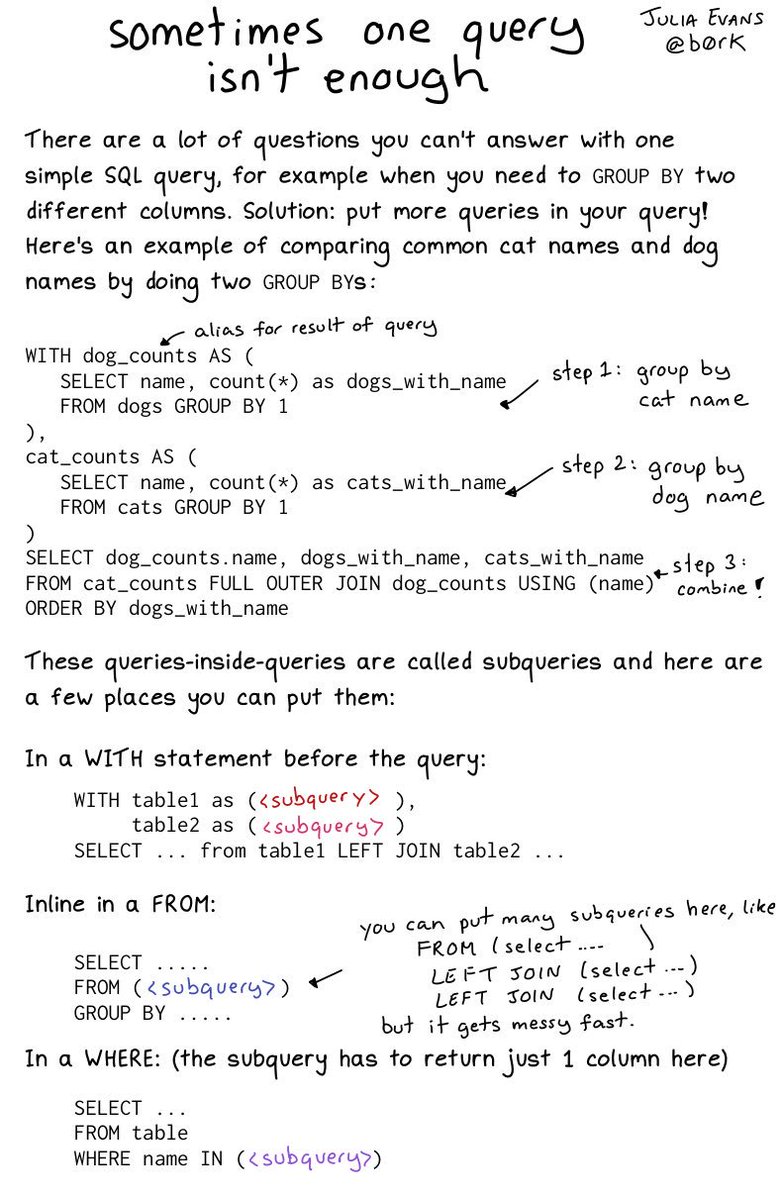 sometimes one query
isn't enough
JULIA EVANS
@b0rk
There are a lot of questions you can't answer with one
simple SQL query, for example when you need to GROUP BY two
different columns. Solution: put more queries in your query!
Here's an example of comparing common cat names and dog
names by doing two GROUP BYs:
alias for result of query
WITH dog_counts AS (
SELECT name, count(*) as dogs_with_name
FROM dogs GROUP BY 1
step 1: group by
cat name
),
cat_counts AS (
SELECT name, count(*) as cats_with_name
FROM cats GROUP BY 1
step 2: group by
dog name
)
SELECT dog_counts.name, dogs_with_name, cats_with_name
FROM cat_counts FULL OUTER JOIN dog_counts USING (name)
ORDER BY dogs_with_name
step 3:
combine!
These queries-inside-queries are called subqueries and here are
a few places you can put them:
In a WITH statement before the query:
WITH table1 as (<subquery> ),
table2 as (<subquery> )
SELECT ... from table1 LEFT JOIN table2 ...
Inline in a FROM:
SELECT .....
FROM (<subquery>)
GROUP BY .....
you can put many subqueries here, like
FROM (select ....
)
LEFT JOIN (select ...)
LEFT JOIN (select ...)
but it gets messy fast.
In a WHERE: (the subquery has to return just 1 column here)
SELECT ...
FROM table
WHERE name IN (<subquery>)